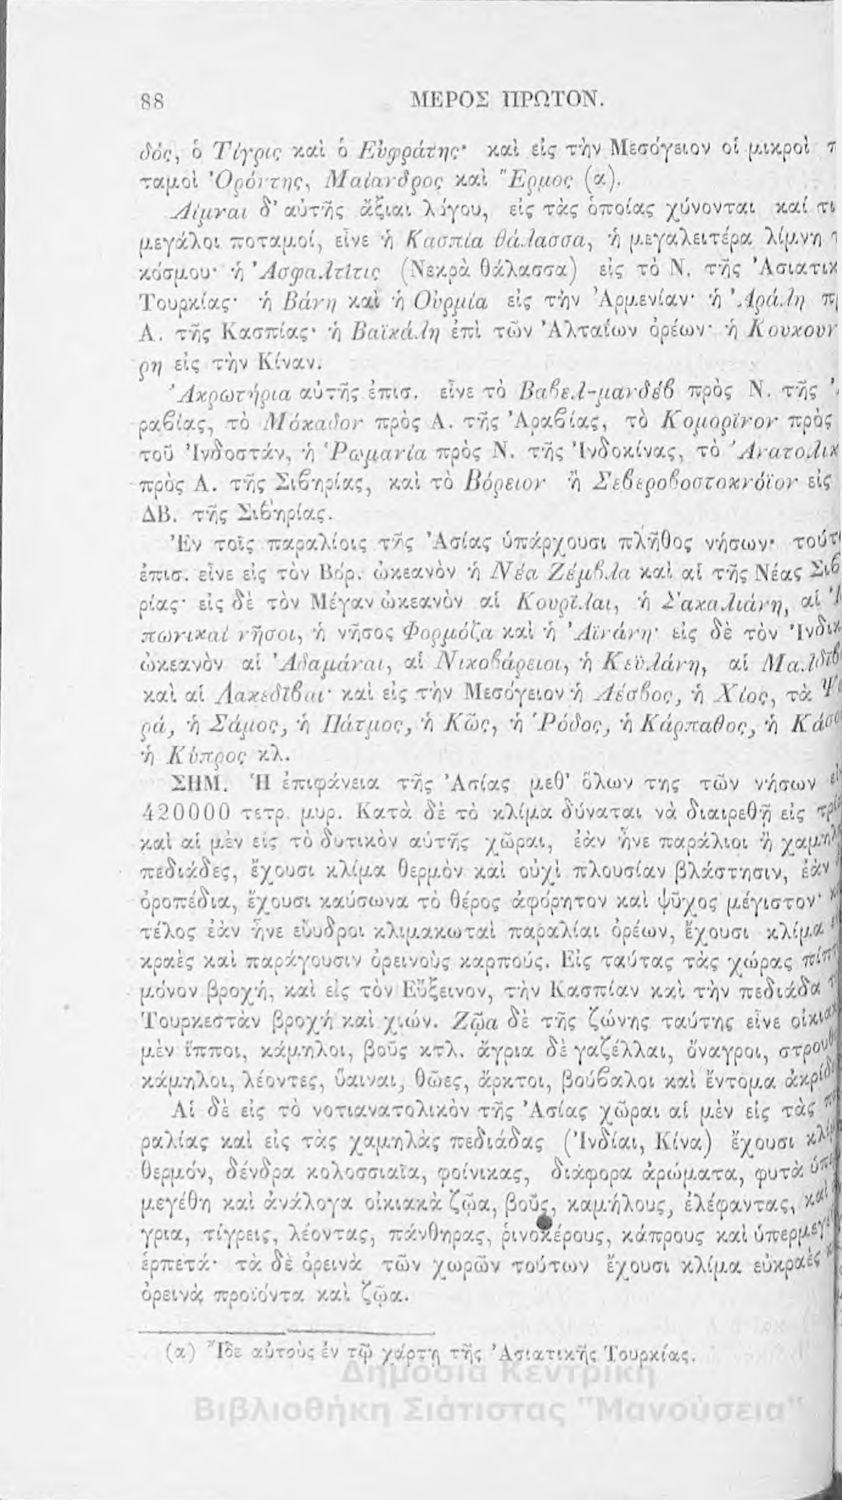 88 ΜΕΡΟΣ ΠΡΩΤΟΝ.
δός, ὁ Τίγρις καὶ ὁ Εὐφράτης· καὶ εἰς τὴν Μεσόγειον οἱ μικροὶ π
ταμοὶ Ὀρόντης, Μαίανδρος καὶ Ἕρμος (α).
Λίμναι δ' αὐτῆς ἄξιαι λόγου, εἰς τὰς ὁποίας χύνονται καί τι
μεγάλοι ποταμοί, εἶνε ἡ Κασπία θάλασσα, ἡ μεγαλειτέρα λίμνη τ
κόσμου· ἡ Ἀσφαλτῖτις (Νεκρὰ θάλασσα) εἰς τὸ Ν. τῆς Ἀσιατικ
Τουρκίας· ἡ Βάνη καὶ ἡ Οὐρμία εἰς τὴν Ἀρμενίαν· ἡ Ἀράλη πρ
Α. τῆς Κασπίας· ἡ Βαϊκάλη ἐπὶ τῶν Ἀλταΐων ὀρέων· ἡ Κουκουν
ρη εἰς τὴν Κίναν.
Ἀκρωτήρια αὐτῆς ἐπισ. εἶνε τὸ Βαβελ-μανδὲβ πρὸς Ν. τῆς Ἀ
ραβίας, τὸ Μόκαδον πρὸς Α. τῆς Ἀραβίας, τὸ Κομορῖνον πρὸς
τοῦ Ἰνδοστάν, ἡ Ῥωμανία πρὸς Ν. τῆς Ἰνδοκίνας, τὸ Ἀνατολικ
πρὸς Α. τῆς Σιβηρίας, καὶ τὸ Βόρειον ἢ Σεβεροβοστοκνόϊον εἰς
ΔΒ. τῆς Σιβηρίας.
Ἐν τοῖς παραλίοις τῆς Ἀσίας ὑπάρχουσι πλῆθος νήσων· τούτ
ἐπισ. εἶνε εἰς τὸν Βόρ. ὠκεανὸν ἡ Νέα Ζέμβλα καὶ αἱ τῆς Νέας Σιβ
ρίας· εἰς δὲ τὸν Μέγαν ὠκεανὸν αἱ Κουρῖλαι, ἡ Σακαλιάνη, αἱ Ἰ
πωνικαὶ νῆσοι, ἡ νῆσος Φορμόζα καὶ ἡ Ἀϊνάνη· εἰς δὲ τὸν Ἰνδικ
ὠκεανὸν αἱ Ἀδαμάναι, αἱ Νικοβάρειοι, ἡ Κεϋλάνη, αἱ Μαλδιβ
καὶ αἱ Λακεδῖβαι· καὶ εἰς τὴν Μεσόγειον ἡ Λέσβος, ἡ Χίος, τὰ Ψ
ρά, ἡ Σάμος, ἡ Πάτμος, ἡ Κῶς, ἡ Ῥόδος, ἡ Κάρπαθος, ἡ Κάσ
ἡ Κύπρος κλ.
ΣΗΜ. Ἡ ἐπιφάνεια τῆς Ἀσίας μεθ' ὅλων της τῶν νήσων εἶ
420000 τετρ. μυρ. Κατὰ δὲ τὸ κλίμα δύναται νὰ διαιρεθῇ εἰς τρί
καὶ αἱ μὲν εἰς τὸ δυτικὸν αὐτῆς χῶραι, ἐὰν ἦνε παράλιοι ἢ χαμηλ
πεδιάδες, ἔχουσι κλίμα θερμὸν καὶ οὐχὶ πλουσίαν βλάστησιν, ἐὰν
ὀροπέδια, ἔχουσι καύσωνα τὸ θέρος ἀφόρητον καὶ ψῦχος μέγιστον·
τέλος ἐὰν ἦνε εὔυδροι κλιμακωταὶ παραλίαι ὀρέων, ἔχουσι κλίμα
κραὲς καὶ παράγουσιν ὀρεινοὺς καρπούς. Εἰς ταύτας τὰς χώρας πίπτ
μόνον βροχή, καὶ εἰς τὸν Εὔξεινον, τὴν Κασπίαν καὶ τὴν πεδιάδα τ
Τουρκεστὰν βροχὴ καὶ χιών. Ζῷα δὲ τῆς ζώνης ταύτης εἶνε οἰκια
μὲν ἵπποι, κάμηλοι, βοῦς κτλ. ἄγρια δὲ γαζέλλαι, ὄναγροι, στρουθ
κάμηλοι, λέοντες, ὕαιναι, θῶες, ἄρκτοι, βούβαλοι καὶ ἔντομα ἀκρίδ
Αἱ δὲ εἰς τὸ νοτιανατολικὸν τῆς Ἀσίας χῶραι αἱ μὲν εἰς τὰς π
ραλίας καὶ εἰς τὰς χαμηλὰς πεδιάδας (Ἰνδίαι, Κίνα) ἔχουσι κλί
θερμόν, δένδρα κολοσσιαῖα, φοίνικας, διάφορα ἀρώματα, φυτὰ ὑπ
μεγέθη καὶ ἀνάλογα οἰκιακὰ ζῷα, βοῦς, καμήλους, ἐλέφαντας, καὶ
γρια, τίγρεις, λέοντας, πάνθηρας, ῥινοκέρους, κάπρους καὶ ὑπερμεγ
ἑρπετά· τὰ δὲ ὀρεινὰ τῶν χωρῶν τούτων ἔχουσι κλίμα εὐκραὲς
ὀρεινὰ προϊόντα καὶ ζῷα.
(α) Ἴδε αὐτοὺς ἐν τῷ χάρτῃ τῆς Ἀσιατικῆς Τουρκίας.
Δημόσια Κεντρική
Βιβλιοθήκη Σιάτιστας "Μανούσεια"